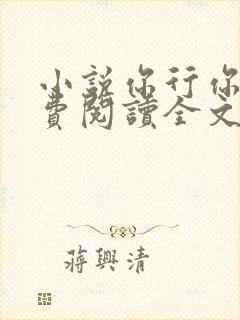 小說你行你
費閱讀全文
蔣興清